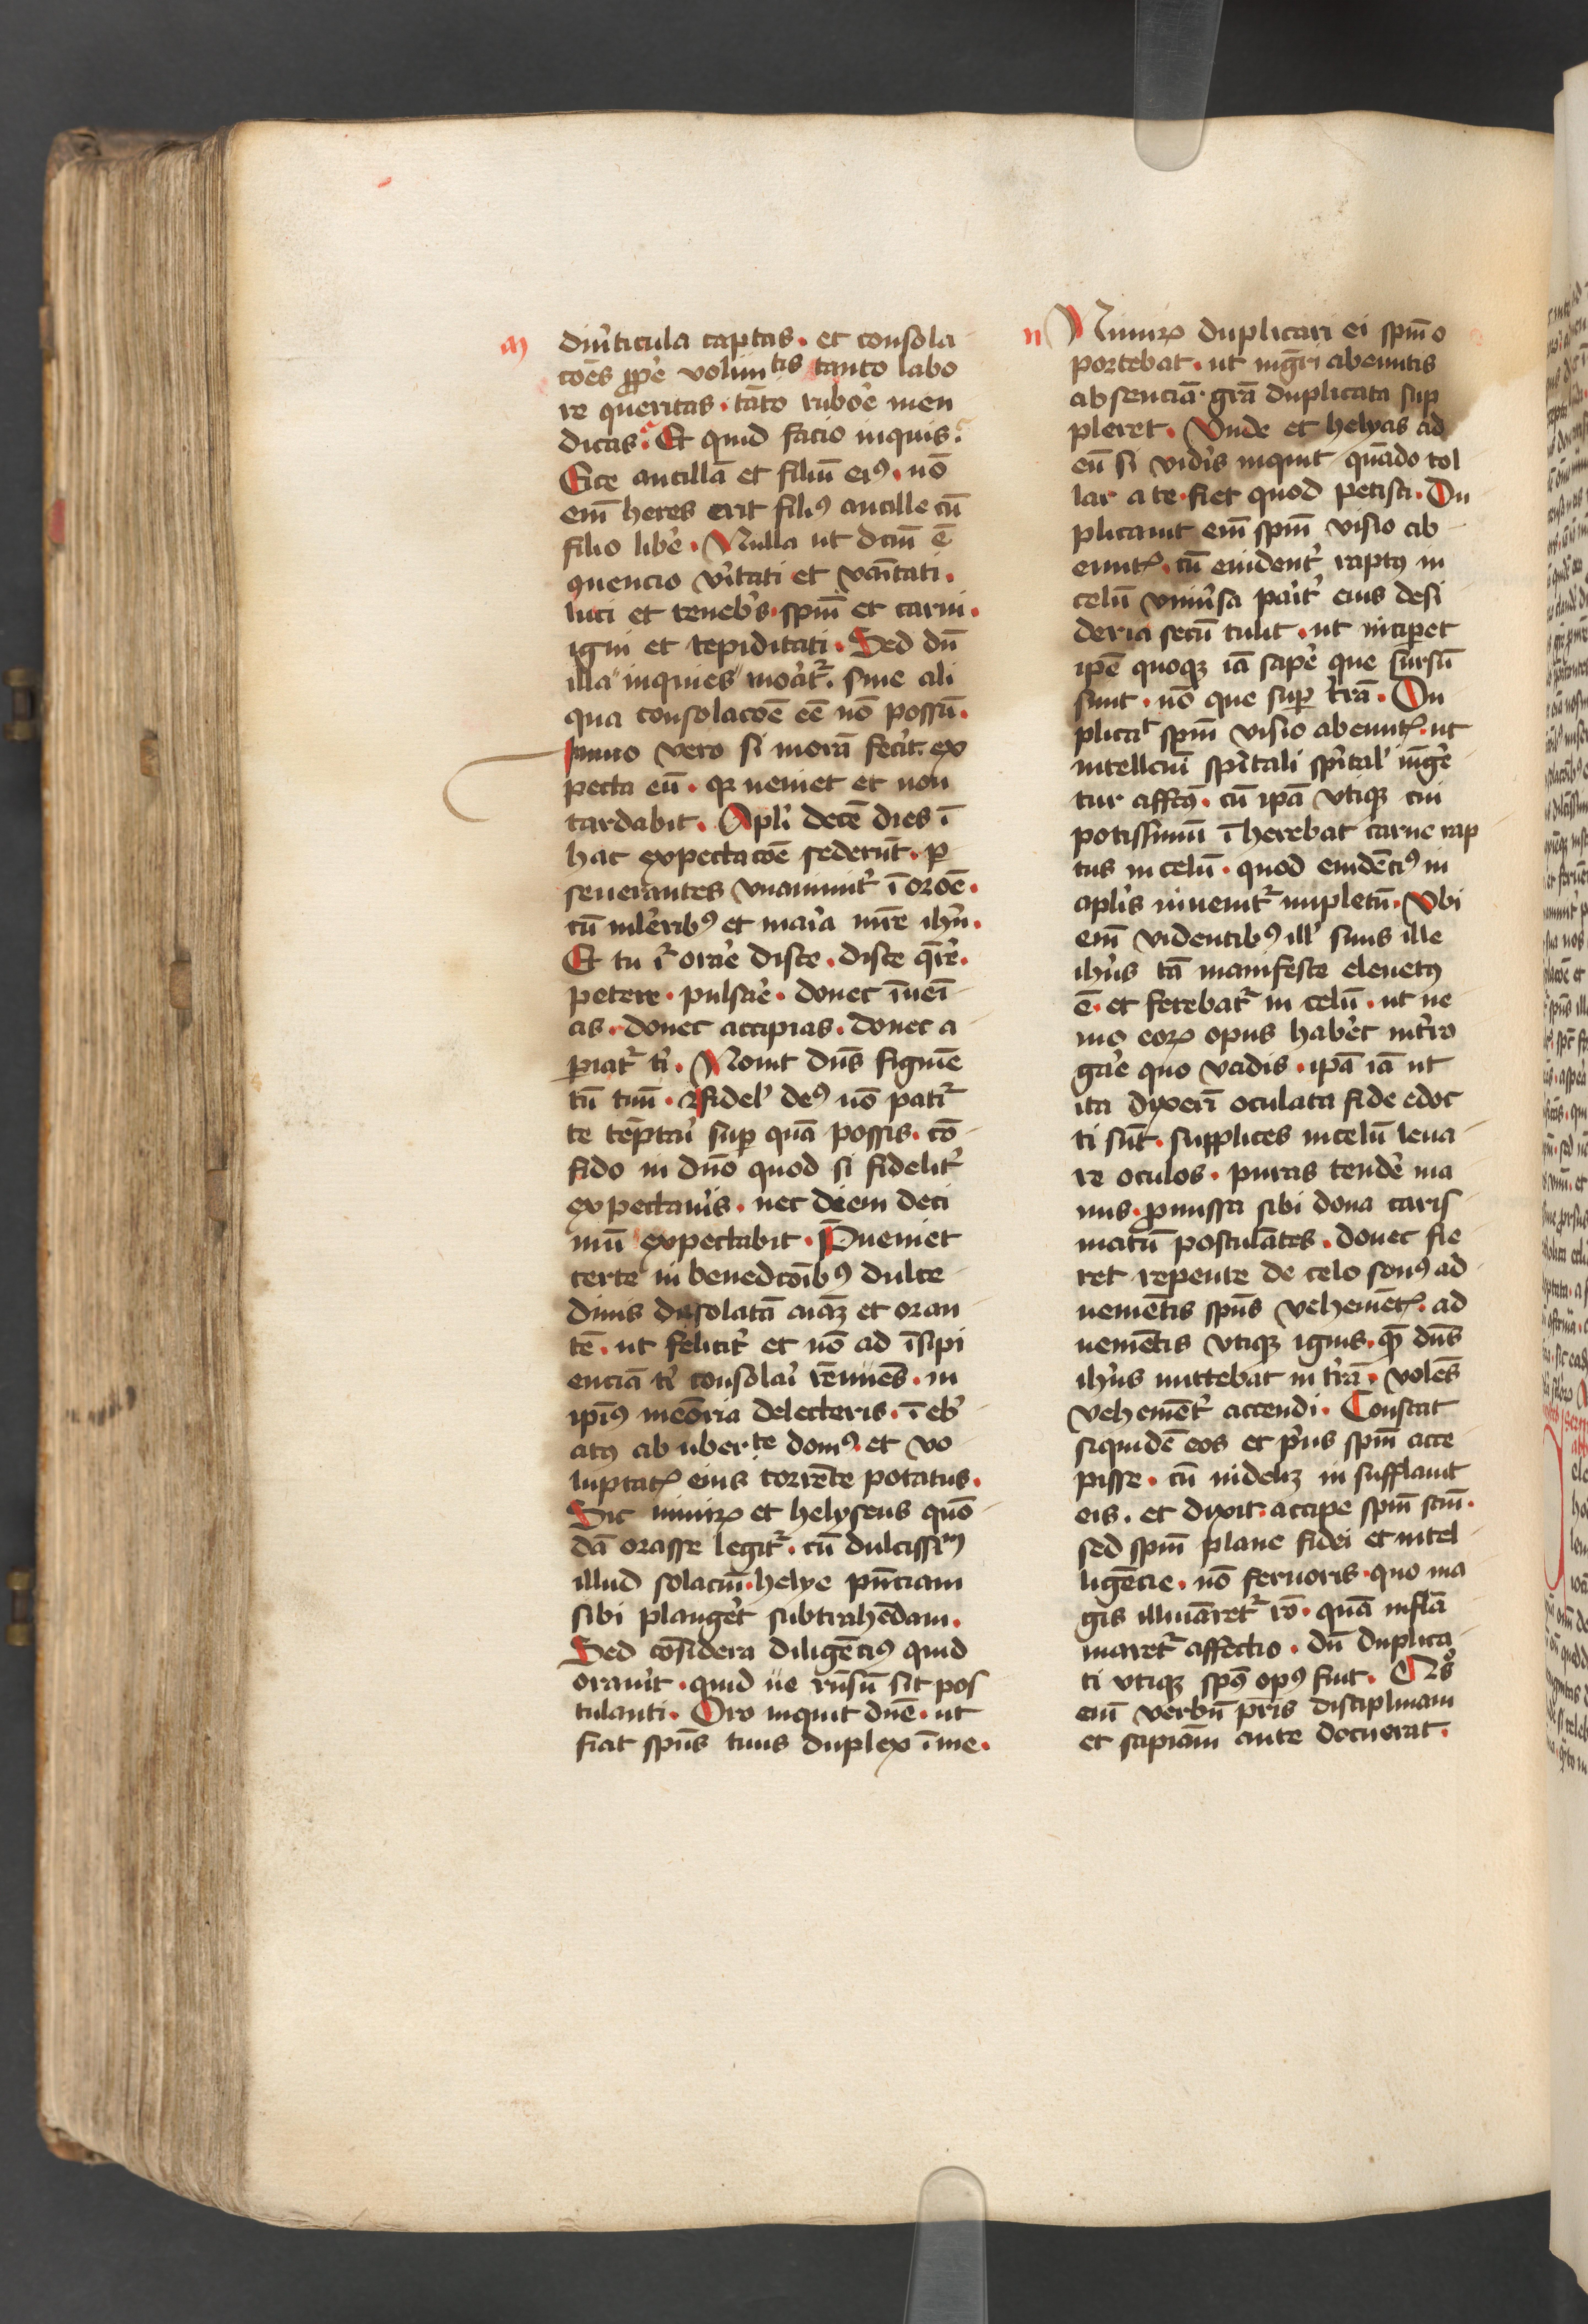 m
diu͛ticula captas. et consola
cōes ꝓpe͛ volun tis tanto labo
re queritas. tāto rubo͛e men
dicas. Et quid facio inquis.
Eice ancillā et filiū eiꝰ. nō
em̄ heres erit filiꝰ ancille cū
filio libe͛. Nulla ut dcm̄ ē
ꝯuencio v͛itati et vanitati.
luci et teneb͛s. spm̄ et carni.
igni et tepiditati. Sed dū
illa inquies mo͛at᷑. sine ali
qua consolacōe eē nō possū.
Immo vero si morā fec͛it. ex
pecta eū. qꝛ ueniet et non
tardabit. Apl͛i decē dies ī
hac expectacōe sederūt. ꝑ
seuerantes vnanimit͛ ī orōe.
cū ml͛eribꝰ et ma͛ia mr̄e ih͛u.
Et tu ḡ͛ ora͛e disce. disce q̄re͛.
petere. pulsa͛e. donec īueī
as. donec accipias. donec a
ꝑiat᷑ t͛i. Nouit dn̄s figmē
tū tuū. fidel͛ deꝰ nō pati᷑
te tēptaī suꝑ quā possis. cō
fido in dn̄o quod si fidelit͛
expectau͛is. nec diem deci
mū expectabit. P̄ueniet
certe in benedcōibꝰ dulce
dinis desolatā aīaꝫ et oran
tē. ut felicit͛ et nō ad īsipi
enciā t͛i consolaī rēnuēs. in
ipīꝰ meōria delecteris. ī eb͛
atꝰ ab uber te domꝰ et vo
luptatꝭ eius torrēte potatus.
Sic nimiꝝ et helyseus quō
dā orasse legit᷑. cū dulcissim
illud solaciū. helye pn̄ciam
sibi plange͛t subtrahēdam.
Sed cōsidera diligēciꝰ quid
orauīt. quid ue rn̄sū sit pos
tulanti. Oro inquit dn̄e. ut
fiat spūs tuus duplex ī me.
n
Nimiꝝ duplicari ei spm̄ o
portebat. ut mgr̄i abeuntis
absenciā. grā duplicata sup
pleret. Vnde et helyas ad
eū si vid͛is inquit quādo tol
lar a te. fiet quod petisti. Du
plicauit em̄ spm̄ visio ab
euntꝭ. cū euident͛ raptꝰ in
celū vniu͛sa pa͛it͛ eius desi
deria secū tulit. ut inciperet
ipē quoqꝫ iā sape͛ que sursū
sunt. nō que suꝑ t͛rā. Du
plicat spm̄ visio abeuntꝭ. ut
intellcm̄ sp͛itali sp͛ital͛ iūge͛
tur affcꝰ. cū ipā vtiqꝫ cui
potissimū īherebat carne rap
tus in celū. quod euidēciꝰ in
apl͛is inuenit᷑ impletū. Vbi
em̄ videntibꝰ ill͛ suus ille
ih͛us tā manifeste eleuatꝰ
ē. et ferebat᷑ in celū. ut ne
mo eoꝝ opus habe͛t int͛ro
ga͛e quo vadis. ipā iā ut
ita dixerī oculata fide edoc
ti sūt. supplices in celū leua
re oculos. puras tende͛ ma
nus. ꝓmissa sibi dona caris
matū postulātes. donec fie
ret repente de celo sonꝰ ad
uenientis spūs vehemētꝭ. ad
ueniētis vtiqꝫ ignis. quē dn̄s
ih͛us mittebat in t͛rā. volēs
vehemēt͛ accendi. Constat
siquidē eos et p͛us spm̄ acce
pisse. cū uidelꝫ insufflauit
eis. et dixit. accipe spm̄ scm̄.
sed spm̄ plane fidei et intel
ligēcie. nō feruoris. quo ma
gis illuiāret᷑ rō. quā inflā
maret᷑ affectio. dū duplica
ti vtiqꝫ spūs opꝰ fuit. Quos
em̄ verbū pr̄is disciplinam
et sapiām ante docuerat.